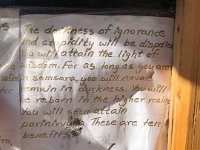 The darkness of ignorance
and stupidity will be dispelled
You will attain the light of
wisdom. For as long as you are
in samsara, you will never
remain in darkness. You will
be reborn in the higher realms
You will soon attain
parinirvana. These are ten
benefits